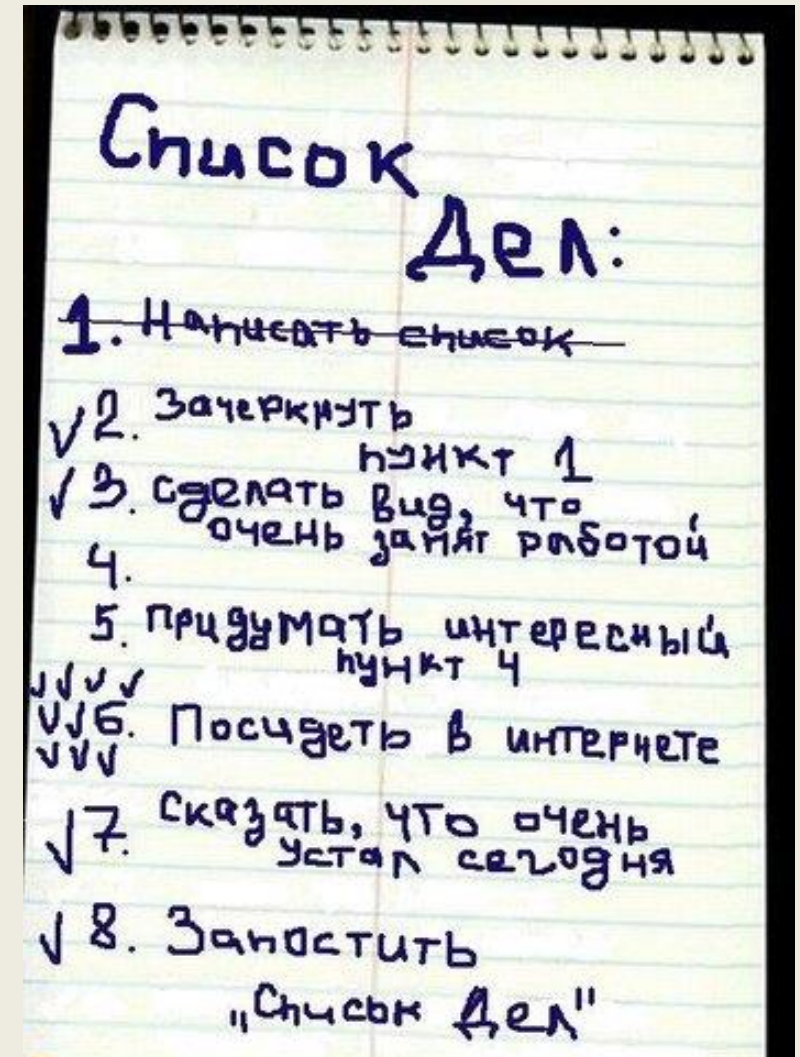 Список
Дел:
1. Написать список
2. Зачеркнуть
пункт 1
3. сделать вид, что
очень занят работой
4.
5. придумать интересный
пункт 4
6. Посидеть в интернете
7. Сказать, что очень
устал сегодня
8. Запостить
„Список Дел"